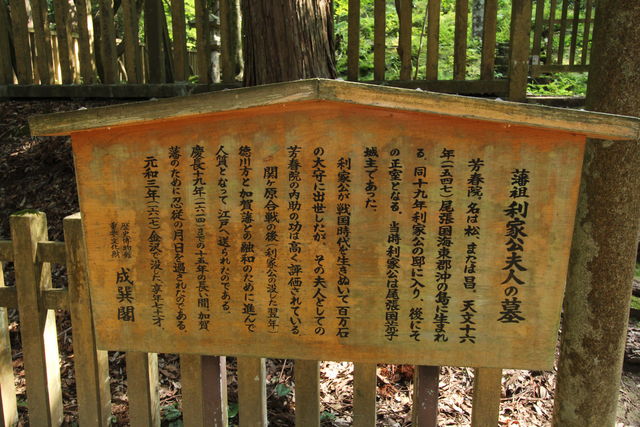 藩祖利家公夫人の墓
芳春院、名は松または昌、天文十六
年(一五四七)尾張国海東郡沖の島に生まれ
る。同十九年利家公の邸に入り、後にそ
の正室となる。当時利家公は尾張国荒子
城主であった。
利家公が戦国時代を生きぬいて百万石
の大守に出世したが、その夫人としての
芳春院の内助の功は高く評価されている
関ヶ原合戦の後(利家公の没した翌年)
徳川方と加賀藩との融和のために進んで
人質となって江戸へ送られたのである。
慶長十九年(一六一四)までの十五年の長い間、加賀
藩のために忍従の月日を過されたのである。
元和三年(一六一七)金沢で没した。享年七十一才。
歴史博物館
重要文化財
成巽閣